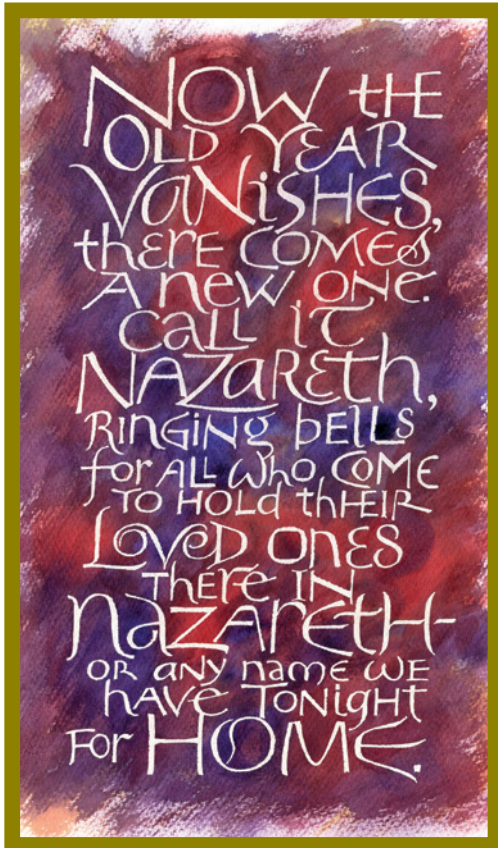 NOW tHE
OLD YEAR
VaNiSHES,
thERE COMES
A new ONE.
CALL iT
NAZaREth,
RiNGiNg bEllS
for ALL who COME
TO HOLd thHEIR
LovED ONES
THERe IN
NaZAREtH-
OR ANY NamE WE
hAVE TONight
FoR HOME.